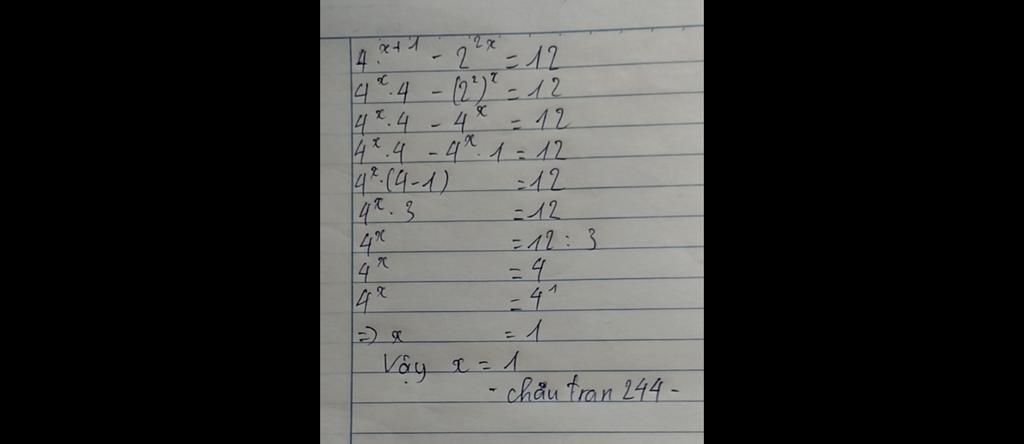 4^{x+1} - 2^{2x} = 12
4^x . 4 - (2^2)^x = 12
4^x . 4 - 4^x = 12
4^x . 4 - 4^x . 1 = 12
4^x . (4-1) = 12
4^x . 3 = 12
4^x = 12 : 3
4^x = 4
4^x = 4^1
=> x = 1
Vậy x = 1
- châu tran 244 -